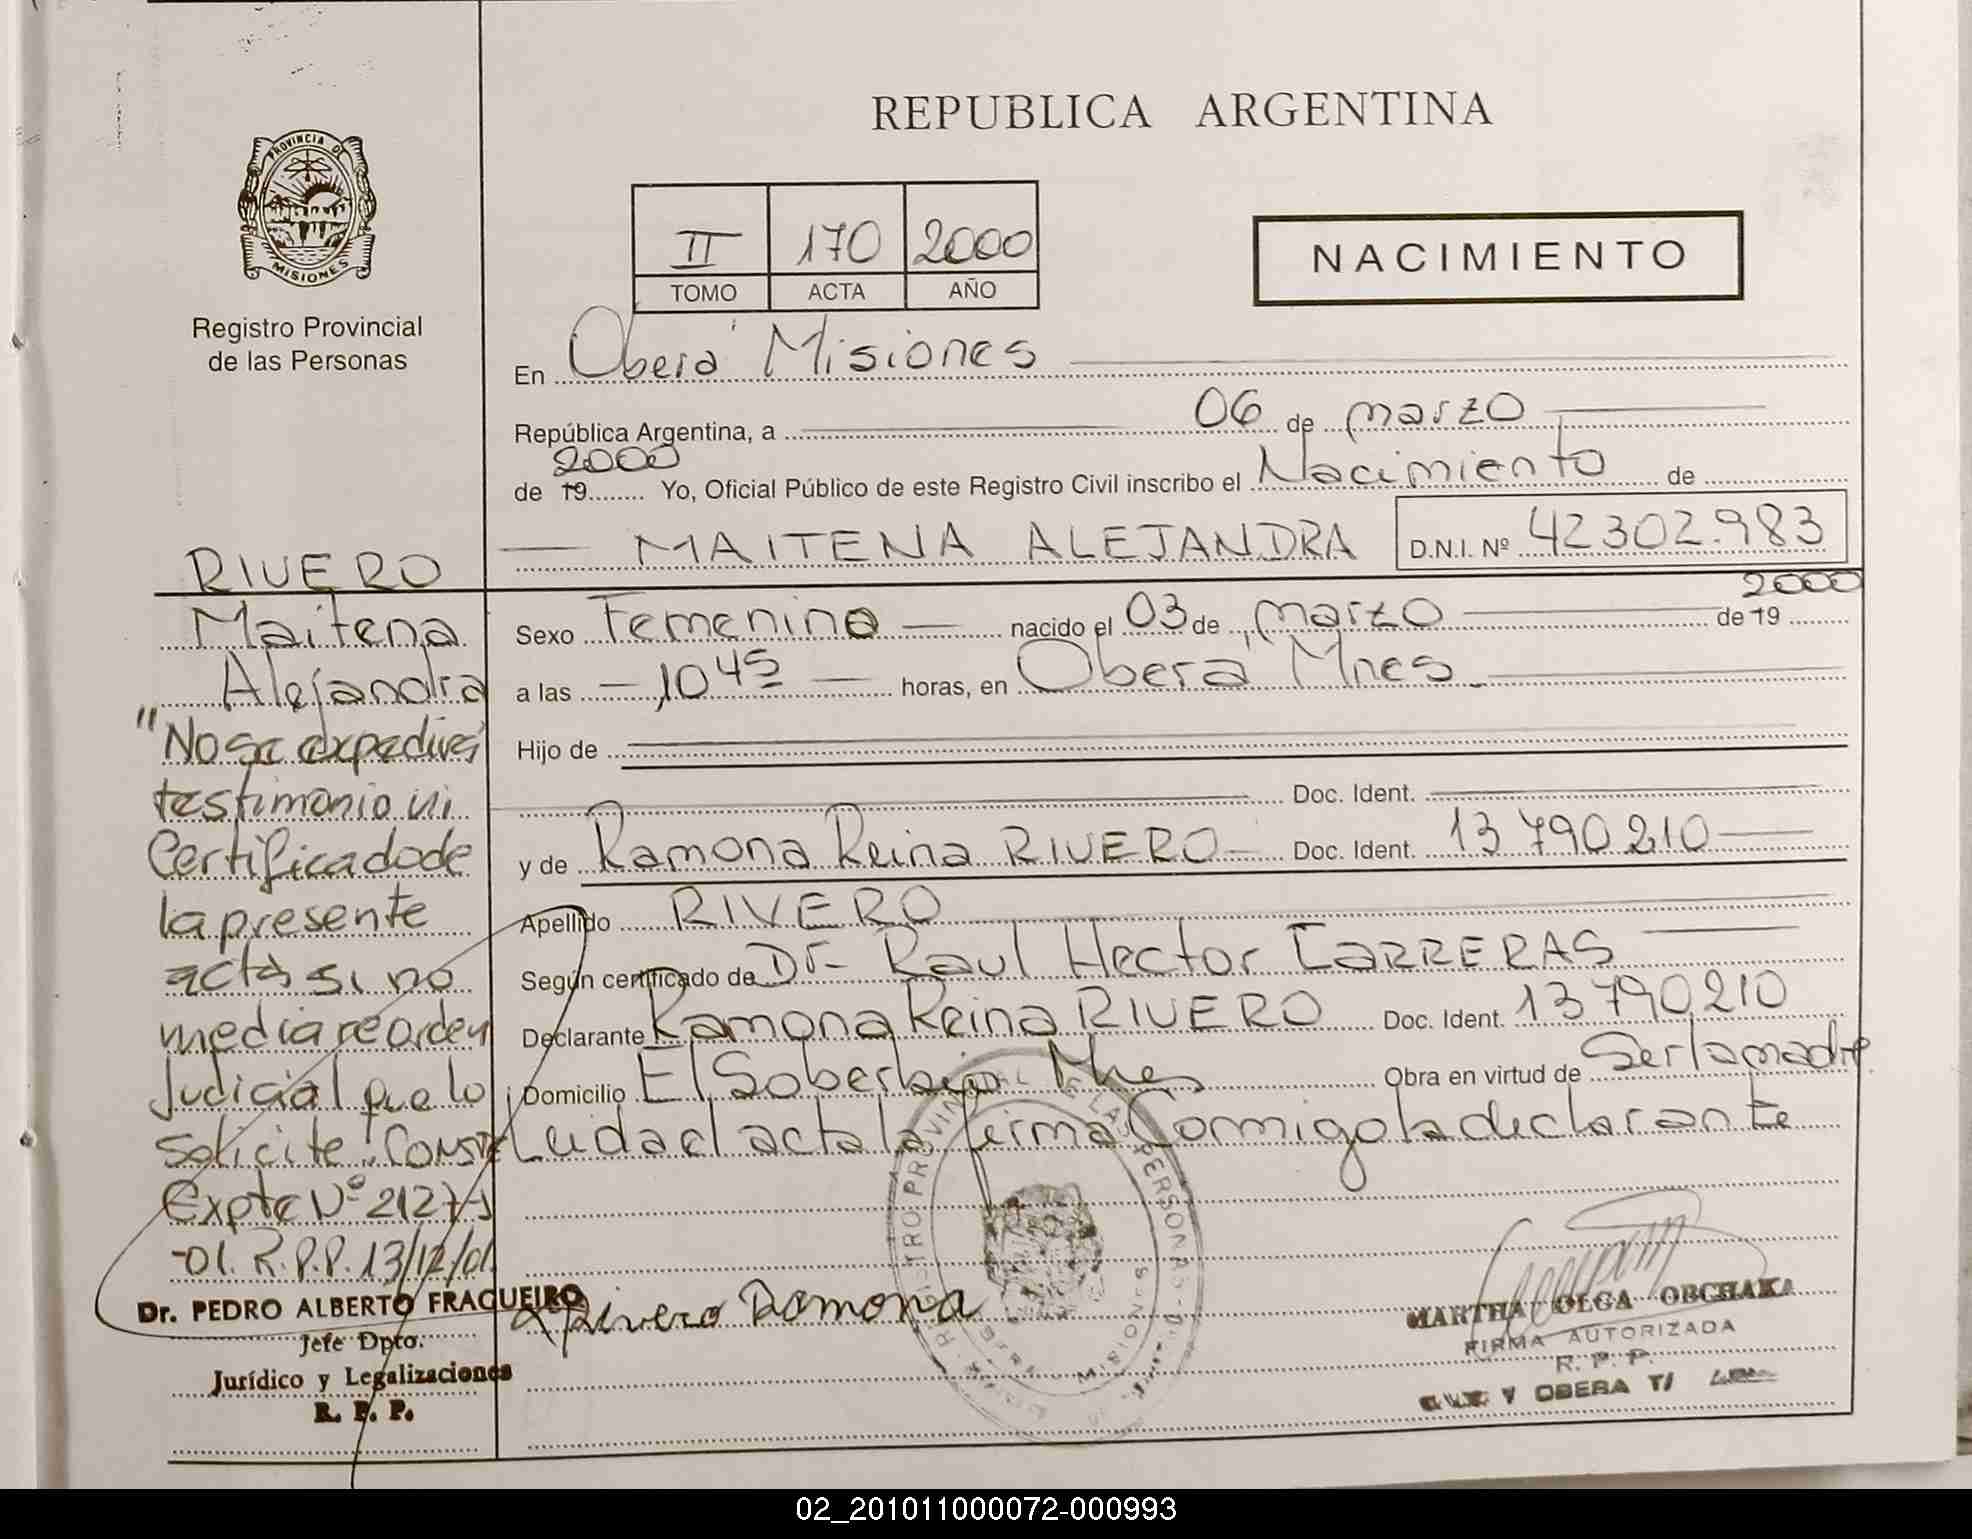 REPUBLICA ARGENTINA
PROVINCIA DE
MISIONES
Registro Provincial
de las Personas
II 170 2000
TOMO ACTA AÑO
NACIMIENTO
En Oberá Misiones
República Argentina, a 06 de marzo
2000
de 19 Yo, Oficial Público de este Registro Civil inscribo el Nacimiento de
MAITENA ALEJANDRA D.N.I. Nº 42302.983
RIVERO
Maitena
Alejandra
"No se expedirá
testimonio ni
Certificado de
la presente
acta si no
mediare orden
Judicial que lo
solicite". Const
Expte Nº 2127-J
-01. R.P.P. 13/12/01.
Dr. PEDRO ALBERTO FRAGUEIRO
Jefe Dpto.
Jurídico y Legalizaciones
R. P. P.
2000
Sexo Femenino nacido el 03 de marzo de 19
a las 10 45 horas, en Oberá Mnes
Hijo de
Doc. Ident.
y de Ramona Reina RIVERO Doc. Ident. 13 790 210
Apellido RIVERO
Según certificado de Dr. Raul Hector CARRERAS
Declarante Ramona Reina RIVERO Doc. Ident. 13 790 210
Domicilio El Soberbio Mnes Obra en virtud de Ser la madre
Leida el acta la firma Conmigo la declarante
Rivero Ramona
REGISTRO PROVINCIAL DE LAS PERSONAS
MISIONES
MARTHA OLGA OBCHAKA
FIRMA AUTORIZADA
R. P. P.
OBERA
02_201011000072-000993